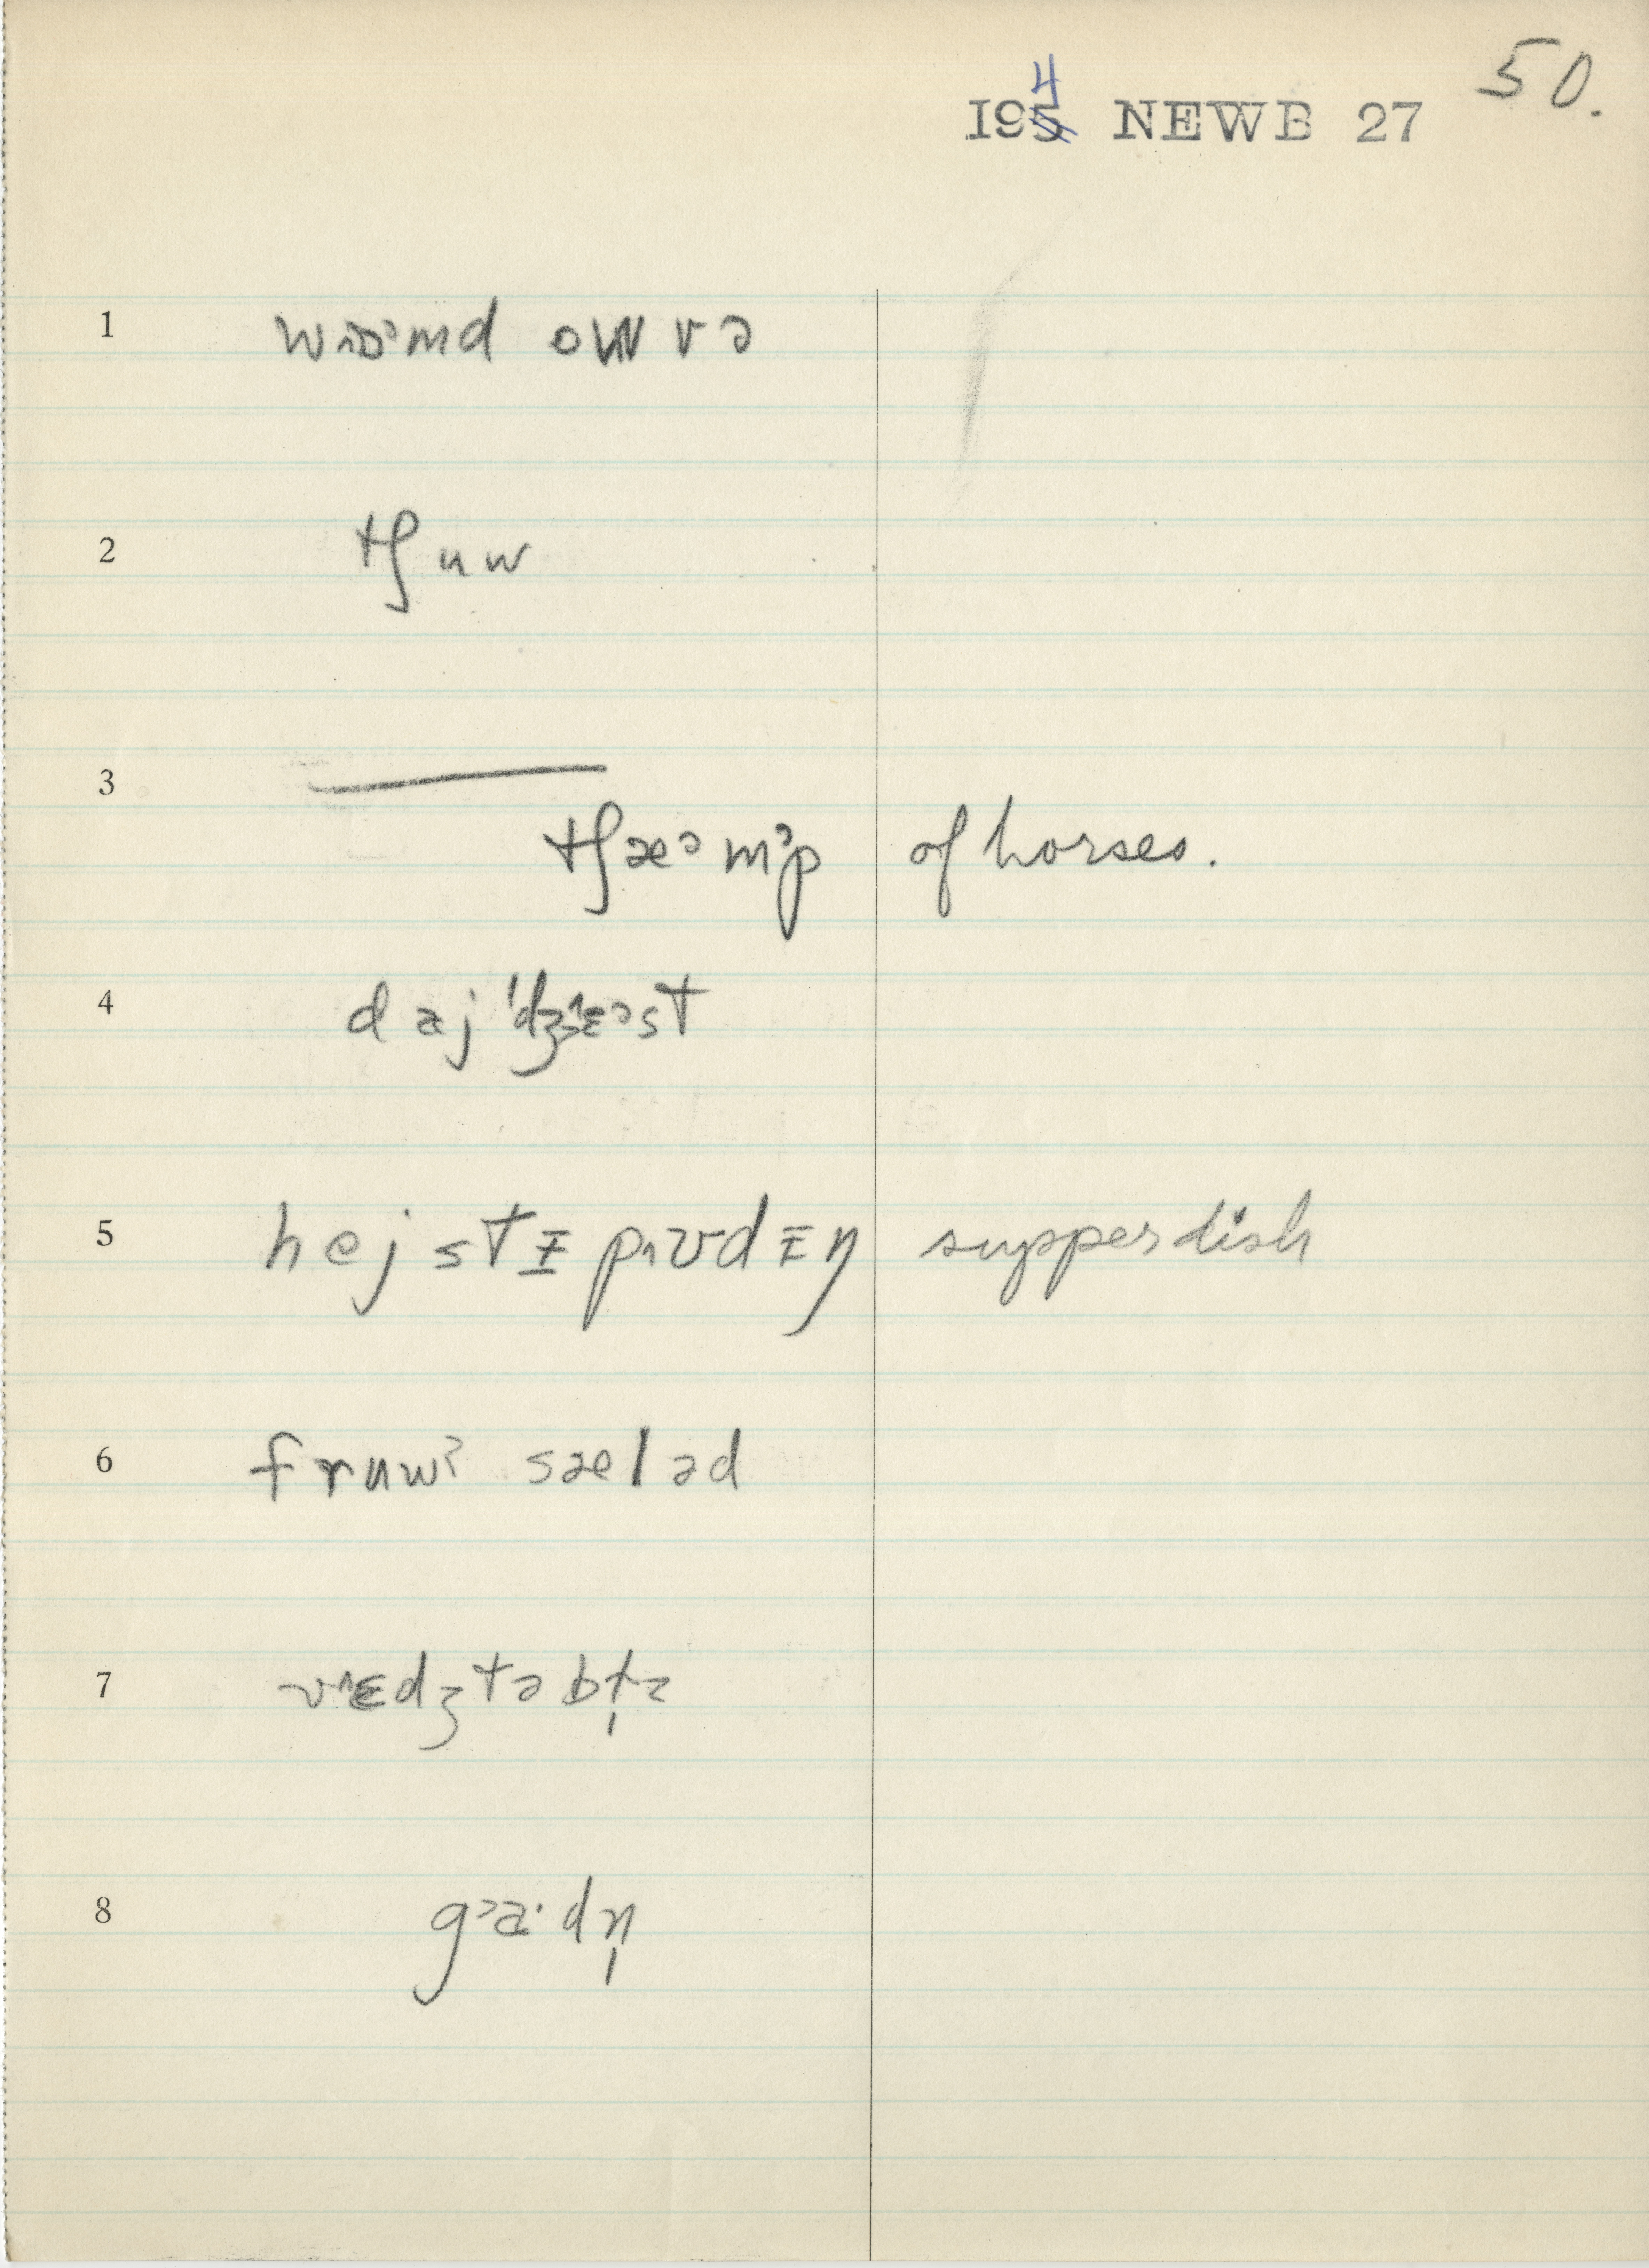 50.
194 NEWB 27
1 wɒᵊmd owvə
2 tʃuw
3 —
tʃæᵊmᵊp of horses.
4 dajˈdʒɛᵊst
5 hejstɪpʊdɪŋ supperdish
6 fruwt sæləd
7 vɛdʒtəbt̩z
8 gᵊa·dn̩